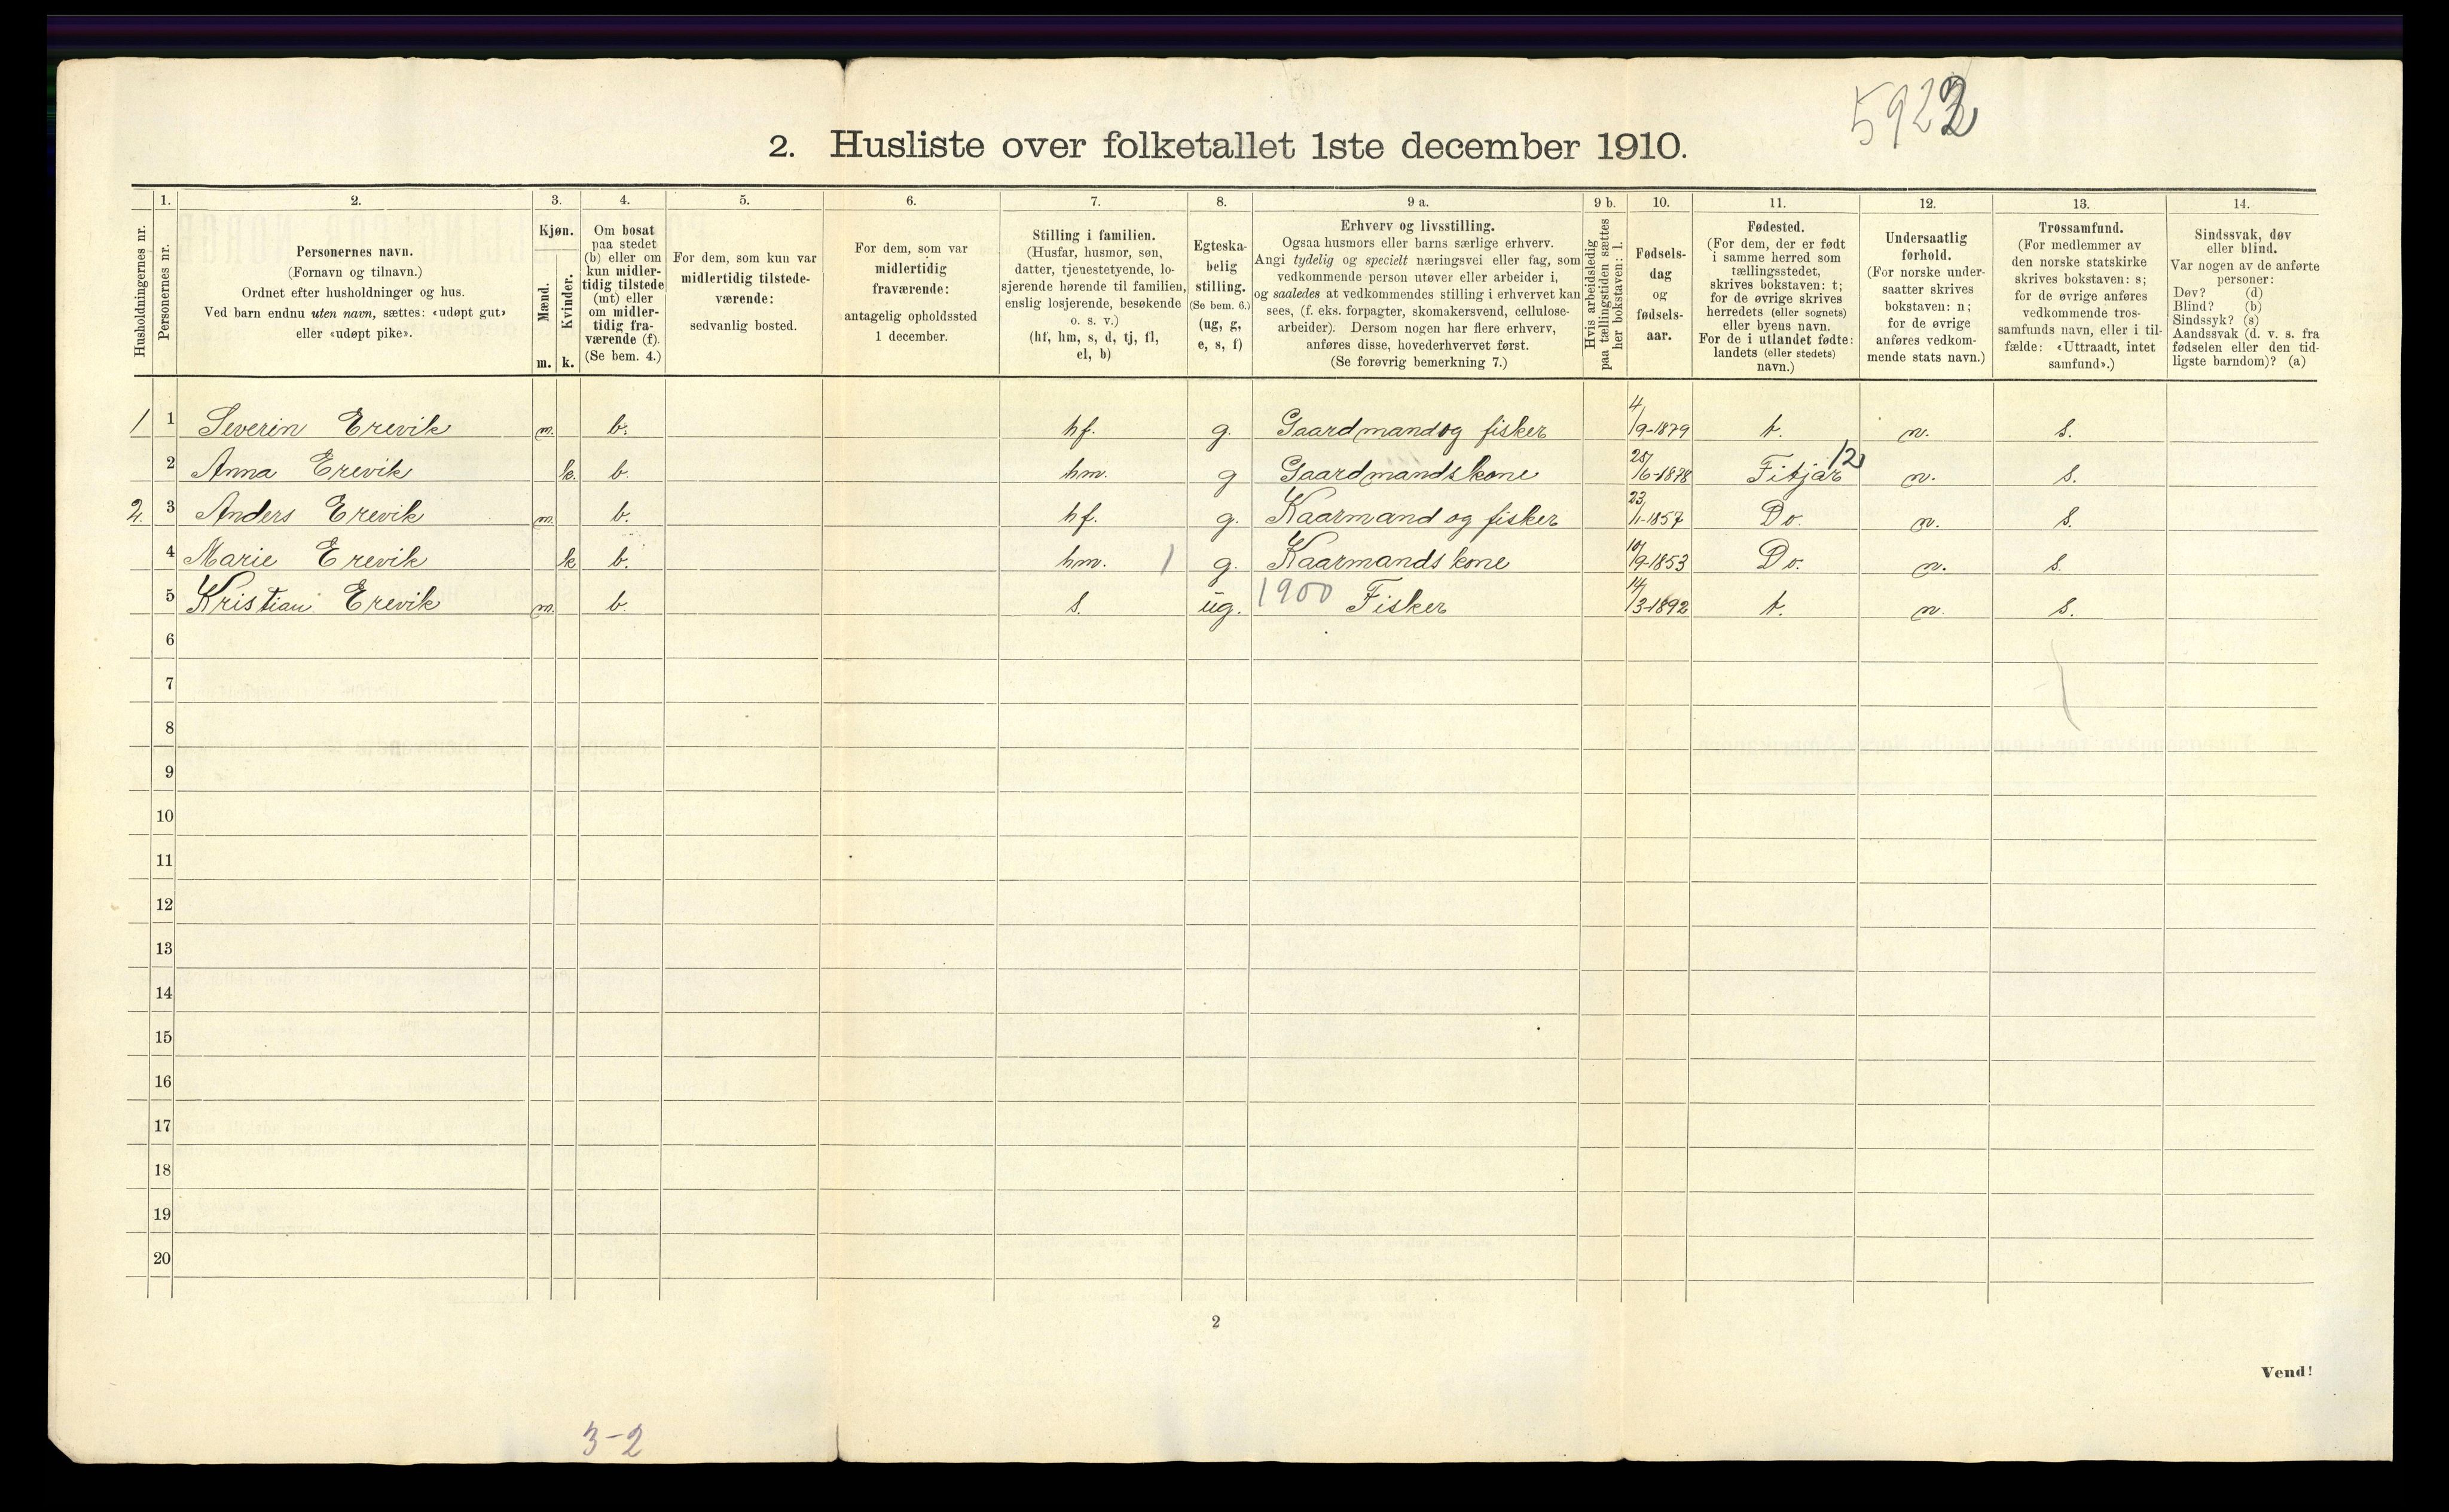 5922
2. Husliste over folketallet 1ste december 1910.
1. 2. 3. 4. 5. 6. 7. 8. 9 a. 9 b. 10. 11. 12. 13. 14.
Husholdningernes nr.
Personernes nr.
Personernes navn.
(Fornavn og tilnavn.)
Ordnet efter husholdninger og hus.
Ved barn endnu uten navn, sættes: «udøpt gut»
eller «udøpt pike».
Kjøn.
Mænd.
m.
Kvinder.
k.
Om bosat
paa stedet
(b) eller om
kun midler-
tidig tilstede
(mt) eller
om midler-
tidig fra-
værende (f).
(Se bem. 4.)
For dem, som kun var
midlertidig tilstede-
værende:
sedvanlig bosted.
For dem, som var
midlertidig
fraværende:
antagelig opholdssted
1 december.
Stilling i familien.
(Husfar, husmor, søn,
datter, tjenestetyende, lo-
sjerende hørende til familien,
enslig losjerende, besøkende
o. s. v.)
(hf, hm, s, d, tj, fl,
el, b)
Egteska-
belig
stilling.
(Se bem. 6.)
(ug, g,
e, s, f)
Erhverv og livsstilling.
Ogsaa husmors eller barns særlige erhverv.
Angi tydelig og specielt næringsvei eller fag, som
vedkommende person utøver eller arbeider i,
og saaledes at vedkommendes stilling i erhvervet kan
sees, (f. eks. forpagter, skomakersvend, cellulose-
arbeider). Dersom nogen har flere erhverv,
anføres disse, hovederhvervet først.
(Se forøvrig bemerkning 7.)
Hvis arbeidsledig
paa tællingstiden sættes
her bokstaven: l.
Fødsels-
dag
og
fødsels-
aar.
Fødested.
(For dem, der er født
i samme herred som
tællingsstedet,
skrives bokstaven: t;
for de øvrige skrives
herredets (eller sognets)
eller byens navn.
For de i utlandet fødte:
landets (eller stedets)
navn.)
Undersaatlig
forhold.
(For norske under-
saatter skrives
bokstaven: n;
for de øvrige
anføres vedkom-
mende stats navn.)
Trossamfund.
(For medlemmer av
den norske statskirke
skrives bokstaven: s;
for de øvrige anføres
vedkommende tros-
samfunds navn, eller i til-
fælde: «Uttraadt, intet
samfund».)
Sindssvak, døv
eller blind.
Var nogen av de anførte
personer:
Døv? (d)
Blind? (b)
Sindssyk? (s)
Aandssvak (d. v. s. fra
fødselen eller den tid-
ligste barndom)? (a)
1 1 Severin Erevik m. b. hf. g. Gaardmand og fisker 4/9-1879 t. n. s.
2 Anna Erevik k. b. hm. g Gaardmandskone 25/6-1878 Fitjar 12 n. s.
2. 3 Anders Erevik m. b. hf. g. Kaarmand og fisker 23/1-1857 Do. n. s.
4 Marie Erevik k b. hm. 1 g. Kaarmandskone 10/9-1853 Do. n. s.
5 Kristian Erevik m. b. s. ug. 1900 Fisker 14/3-1892 t. n. s.
6
7
8
9
10
11
12
13
14
15
16
17
18
19
20
2
Vend!
3-2